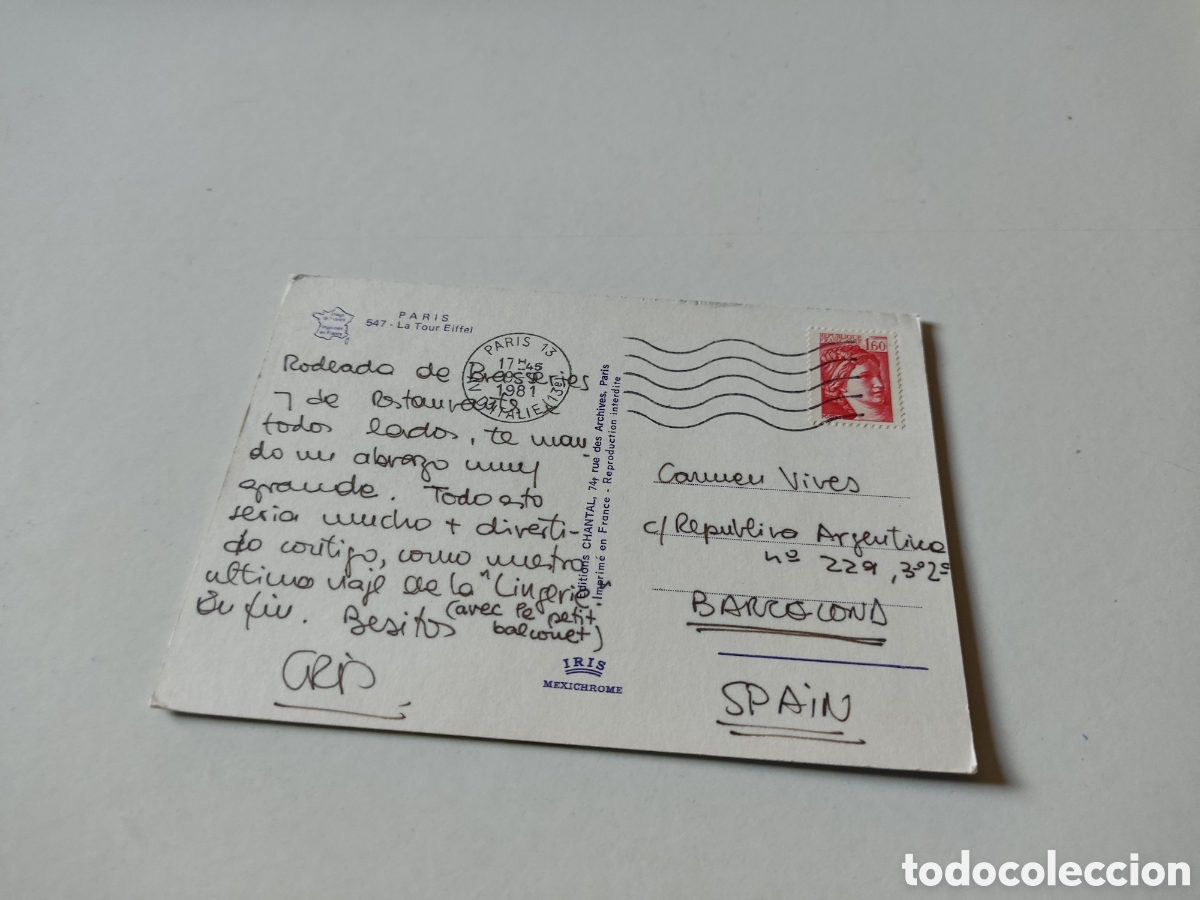 PARIS
547 - La Tour Eiffel
PARIS 13
17H45
1981
ITALIE (13e)
REPUBLIQUE FRANCAISE
1,60
Rodeada de Brasseries
y de restaurants
todos lados, te man
do un abrazo muy
grande. Todo esto
seria mucho + diverti-
do contigo, como nuestro
ultimo viaje de la "Lingerie"
(avec le petit
balconet)
En fin. Besitos
CRIS
Editions CHANTAL, 74, rue des Archives, Paris
Imprimé en France - Reproduction interdite
IRIS
MEXICHROME
Carmen Vives
c/ Republica Argentina
nº 229, 3º 2ª
BARCELONA
SPAIN
todocoleccion